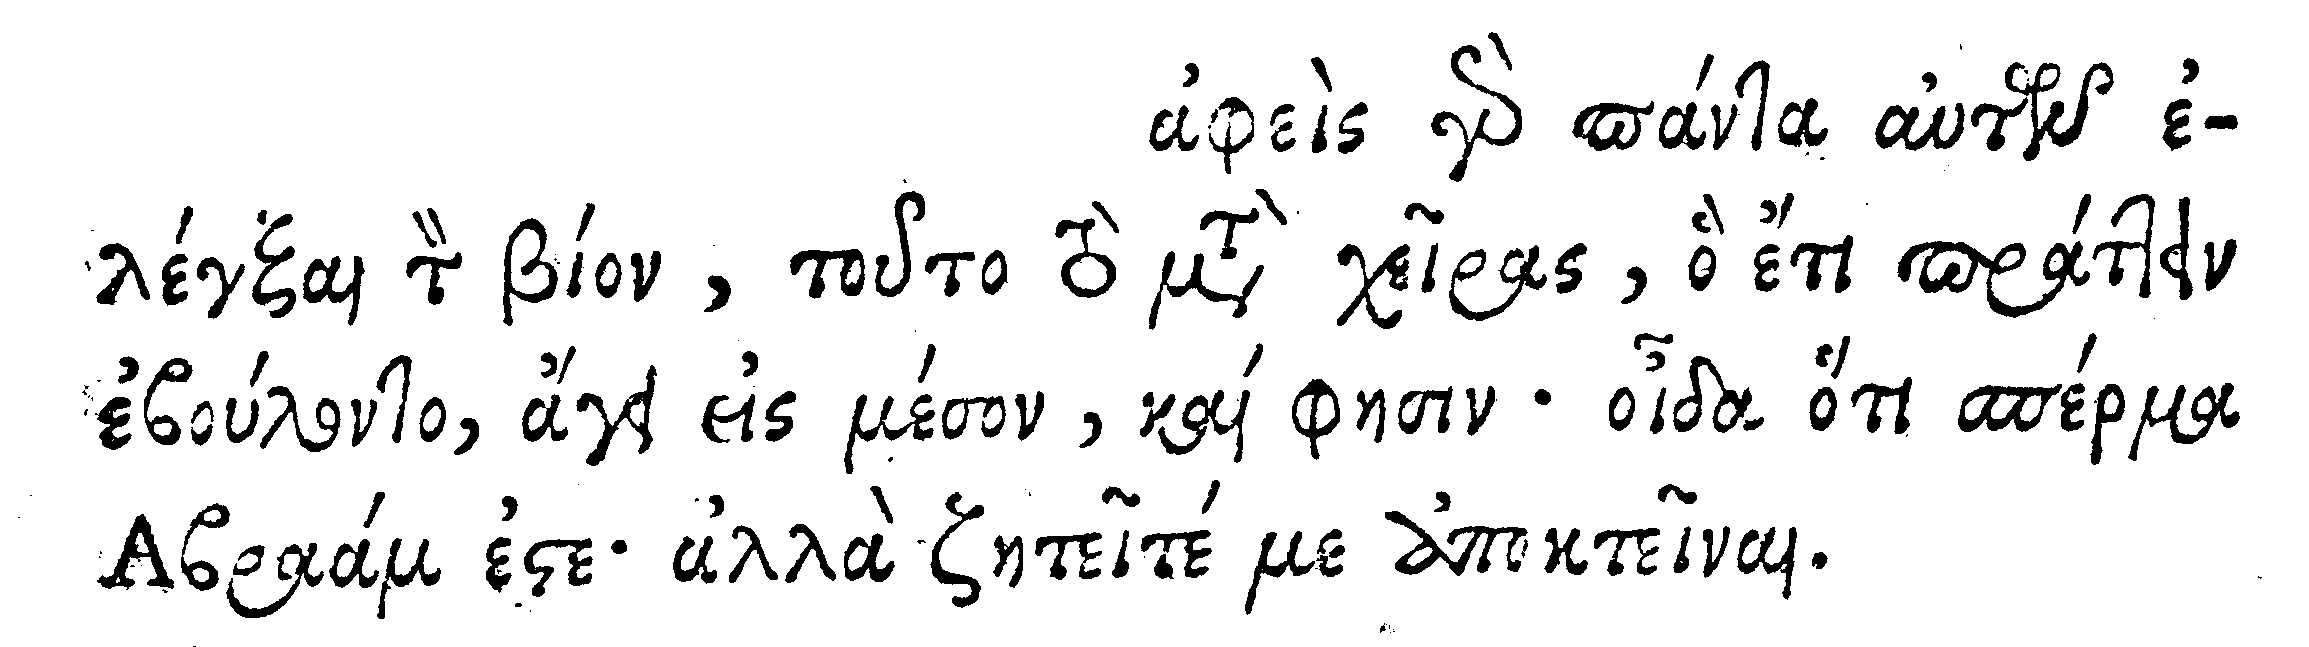 ἀφεὶς γὰρ πάντα αὐτῶν ἐ-
λέγξαι τὸν βίον, τοῦτο ὃ μετὰ χεῖρας, ὃ ἔτι πράττειν
ἐβούλοντο, ἄγει εἰς μέσον, καί φησιν· οἶδα ὅτι σπέρμα
Αβραάμ ἐστε· ἀλλὰ ζητεῖτέ με ἀποκτεῖναι.